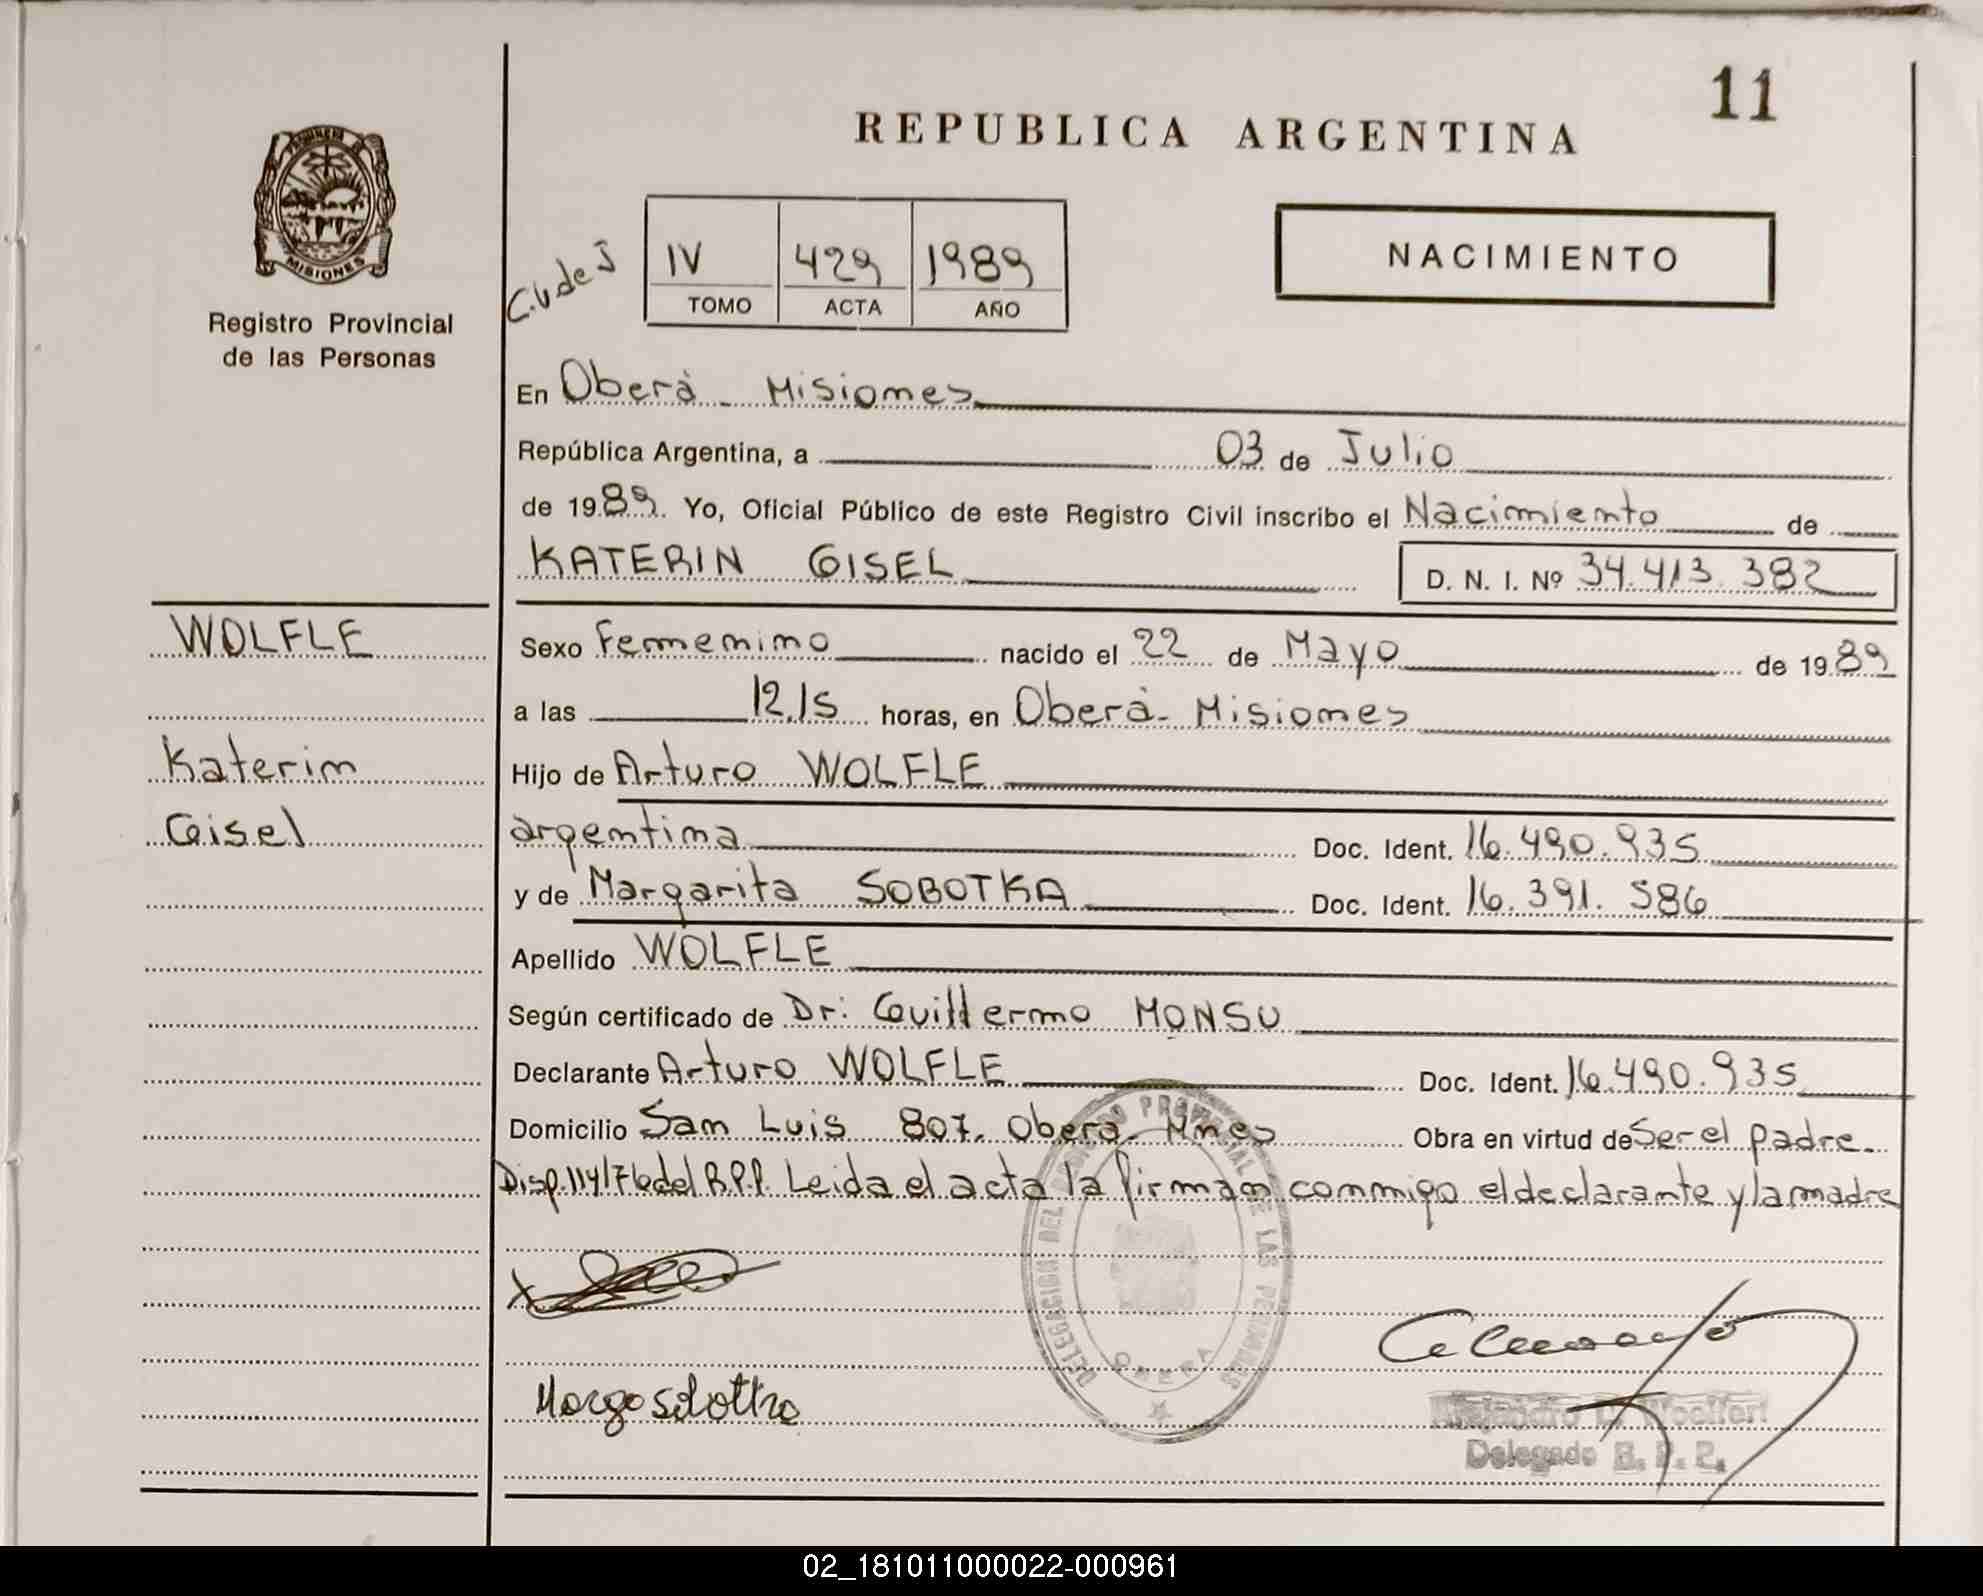 11
REPUBLICA ARGENTINA
MISIONES
Registro Provincial
de las Personas
IV 429 1989
TOMO ACTA AÑO
NACIMIENTO
En Oberá - Misiones
República Argentina, a 03 de Julio
de 1989. Yo, Oficial Público de este Registro Civil inscribo el Nacimiento de
KATERIN GISEL D. N. I. Nº 34.413.382
WOLFLE
Katerin
Geisel
Sexo Femenino nacido el 22 de Mayo de 1989
a las 12.15 horas, en Oberá - Misiones
Hijo de Arturo WOLFLE
argentina Doc. Ident. 16.490.935
y de Margarita SOBOTKA Doc. Ident. 16.391.586
Apellido WOLFLE
Según certificado de Dr: Guillermo MONSU
Declarante Arturo WOLFLE Doc. Ident. 16.490.935
Domicilio San Luis 807. Oberá - Mnes Obra en virtud de Ser el padre.
Disp. 114/76 del R.P.P. Leida el acta la firman conmigo el declarante y la madre
DELEGACION DEL REGISTRO PROVINCIAL DE LAS PERSONAS
OBERA
Delegado R. P. P.
02_181011000022-000961